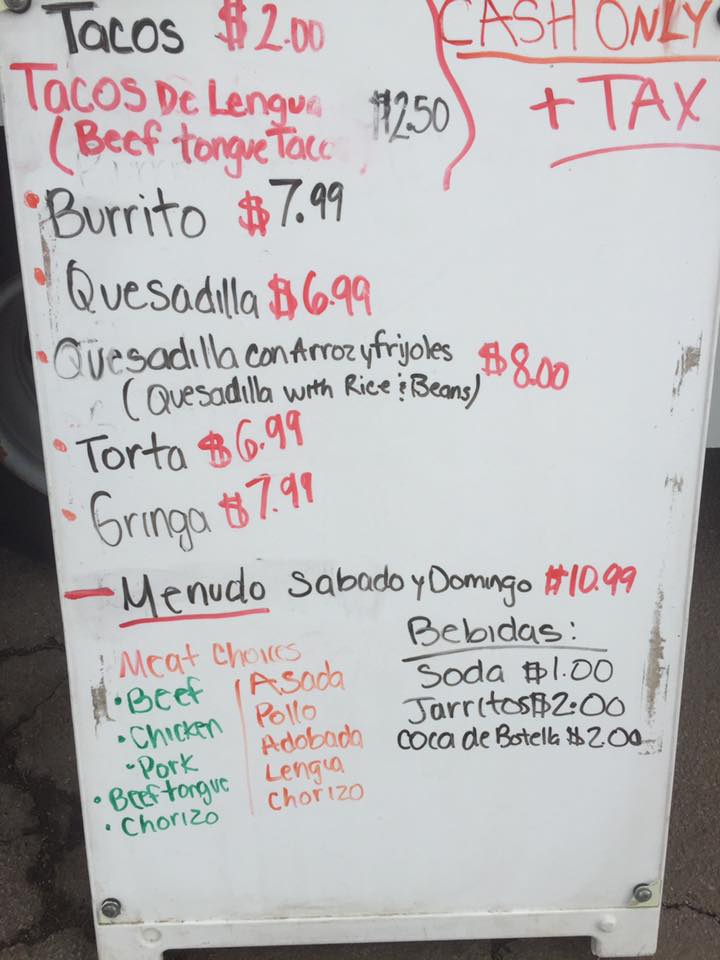 Tacos $2.00
CASH ONLY
+ TAX
Tacos De Lengua $2.50
(Beef tongue Taco
Burrito $7.99
Quesadilla $6.99
Quesadilla con Arroz y frijoles $8.00
(Quesadilla with Rice & Beans)
Torta $6.99
Gringa $7.99
Menudo Sabado y Domingo $10.99
Meat Choices
Beef Asada
Chicken Pollo
Pork Adobada
Beef tongue Lengua
Chorizo Chorizo
Bebidas:
Soda $1.00
Jarritos $2.00
Coca de Botella $2.00